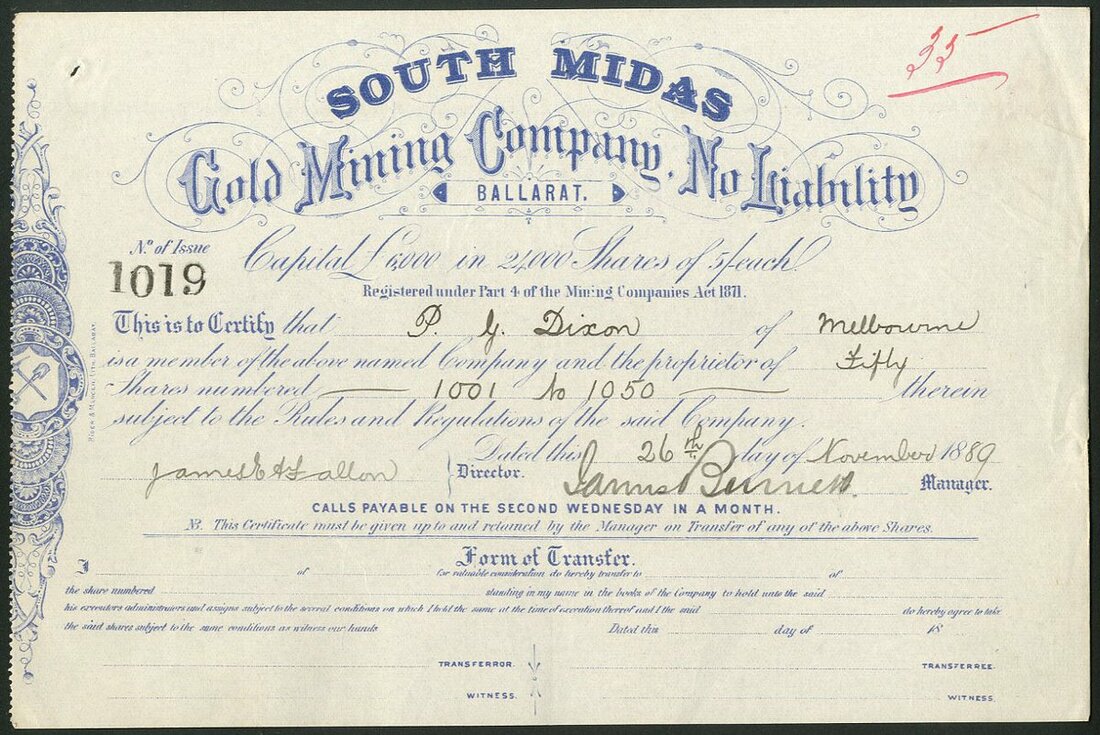 35
SOUTH MIDAS
Gold Mining Company, No Liability
BALLARAT.
No. of Issue
1019
Capital £6,000 in 24,000 Shares of 5/- each.
Registered under Part 4 of the Mining Companies Act 1871.
This is to Certify that P. G. Dixon of Melbourne
is a member of the above named Company and the proprietor of Fifty
Shares numbered 1001 to 1050 therein
subject to the Rules and Regulations of the said Company.
Dated this 26th day of November 1889
James E A Fallon Director. James Burnett Manager.
CALLS PAYABLE ON THE SECOND WEDNESDAY IN A MONTH.
NB. This Certificate must be given up to and retained by the Manager on Transfer of any of the above Shares.
Form of Transfer.
I of for valuable consideration do hereby transfer to of
the share numbered standing in my name in the books of the Company to hold unto the said
his executors administrators and assigns subject to the several conditions on which I held the same at the time of execution thereof and I the said do hereby agree to take
the said shares subject to the same conditions as witness our hands Dated this day of 18
TRANSFERROR. TRANSFERREE.
WITNESS. WITNESS.
BALLARAT.